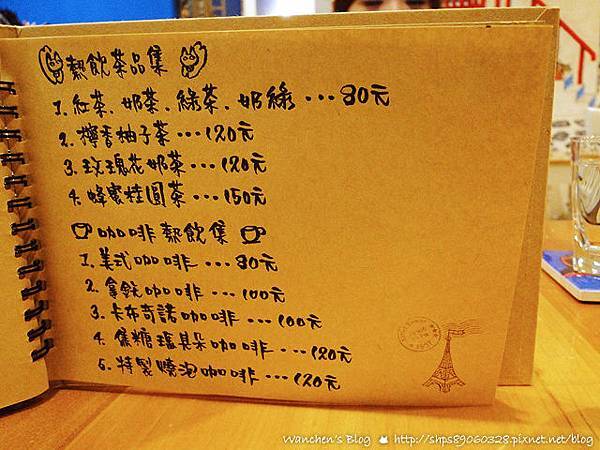 熱飲茶品集
1. 紅茶、奶茶、綠茶、奶綠 ... 80元
2. 檸香柚子茶 ... 120元
3. 玫瑰花奶茶 ... 120元
4. 蜂蜜桂圓茶 ... 150元
咖啡熱飲集
1. 美式咖啡 ... 80元
2. 拿鐵咖啡 ... 100元
3. 卡布奇諾咖啡 ... 100元
4. 焦糖瑪其朵咖啡 ... 120元
5. 特製燒泡咖啡 ... 120元
Wanchen's Blog http://shps89060328.pixnet.net/blog